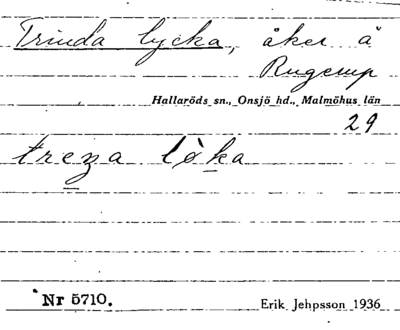 Trinda lycka, åker å
Rugerup
Hallaröds sn., Onsjö hd., Malmöhus län
29
treṉa lò̱ḵa
Nr 5710.
Erik Jehpsson 1936